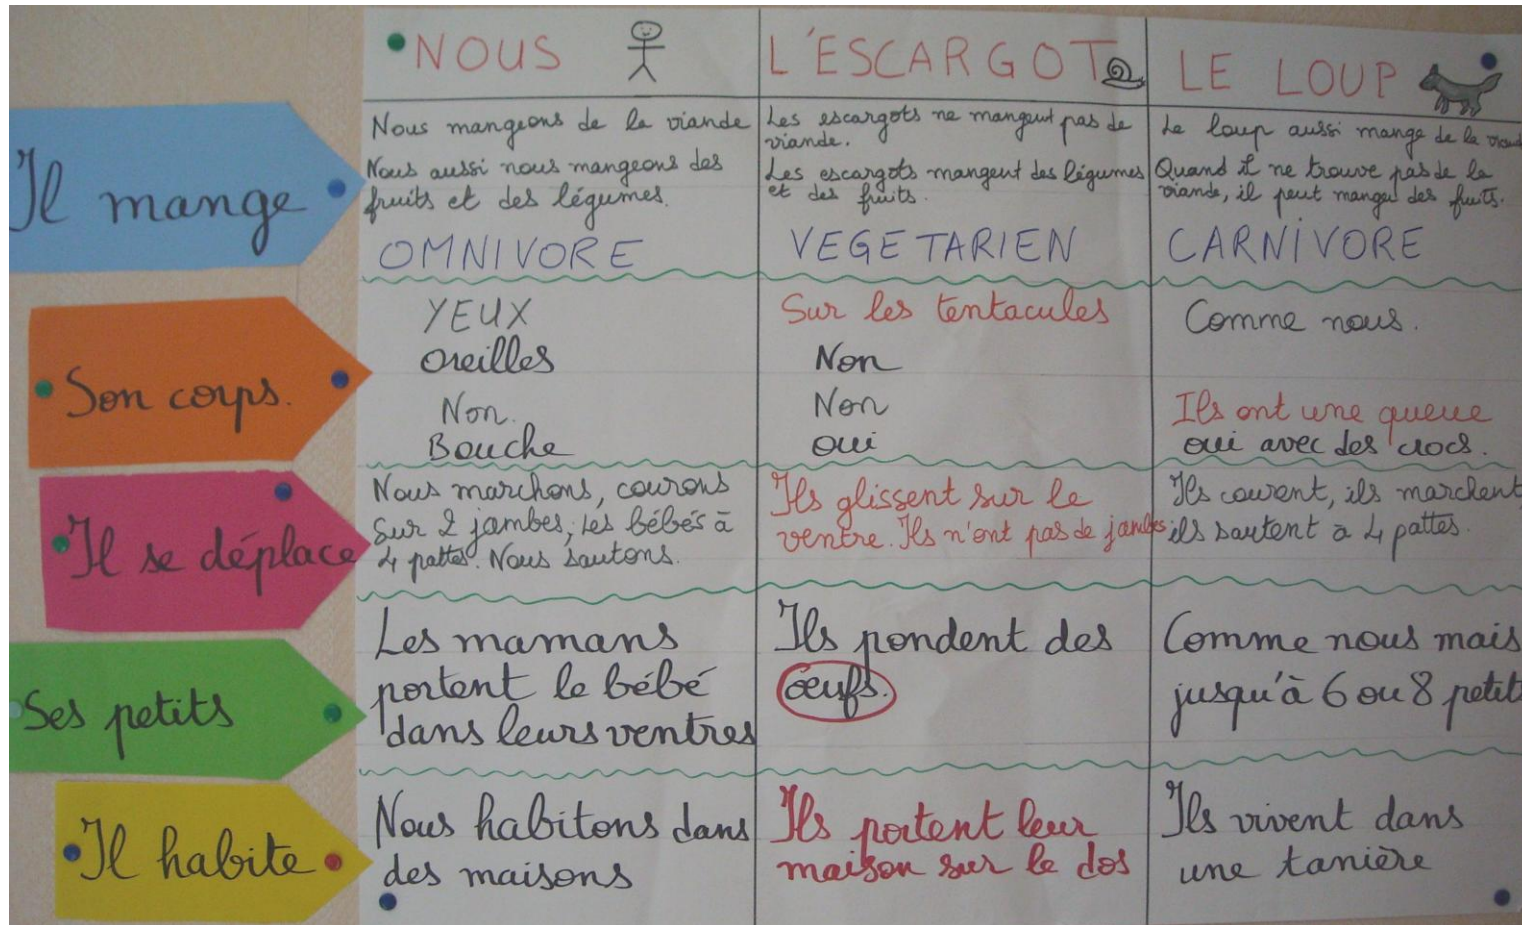 NOUS
L'ESCARGOT
LE LOUP
Il mange
Nous mangeons de la viande
Nous aussi nous mangeons des
fruits et des légumes.
OMNIVORE
Les escargots ne mangent pas de
viande.
Les escargots mangent des légumes
et des fruits.
VEGETARIEN
Le loup aussi mange de la
Quand il ne trouve pas de la
viande, il peut manger des fruits.
CARNIVORE
Son corps.
YEUX
Oreilles
Non.
Bouche
Sur les tentacules
Non
Non
oui
Comme nous.
Ils ont une queue
oui avec des crocs.
Il se déplace
Nous marchons, courons
sur 2 jambes, les bébés à
4 pattes. Nous sautons.
Ils glissent sur le
ventre. Ils n'ont pas de jambes
Ils courent, ils marchent,
ils sautent à 4 pattes.
Ses petits
Les mamans
portent le bébé
dans leurs ventres
Ils pondent des
œufs.
Comme nous mais
jusqu'à 6 ou 8 petits
Il habite
Nous habitons dans
des maisons
Ils portent leur
maison sur le dos
Ils vivent dans
une tanière